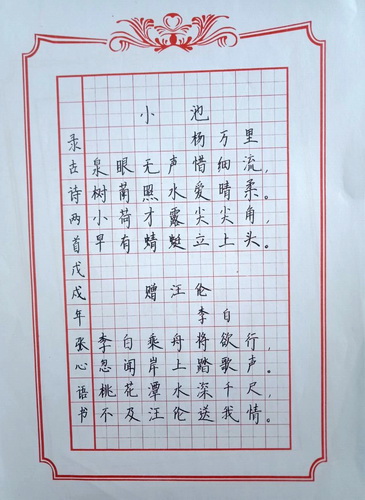 小池
杨万里
泉眼无声惜细流，
树荫照水爱晴柔。
小荷才露尖尖角，
早有蜻蜓立上头。
赠汪伦
李白
李白乘舟将欲行，
忽闻岸上踏歌声。
桃花潭水深千尺，
不及汪伦送我情。
录古诗两首戊戌年张心语书